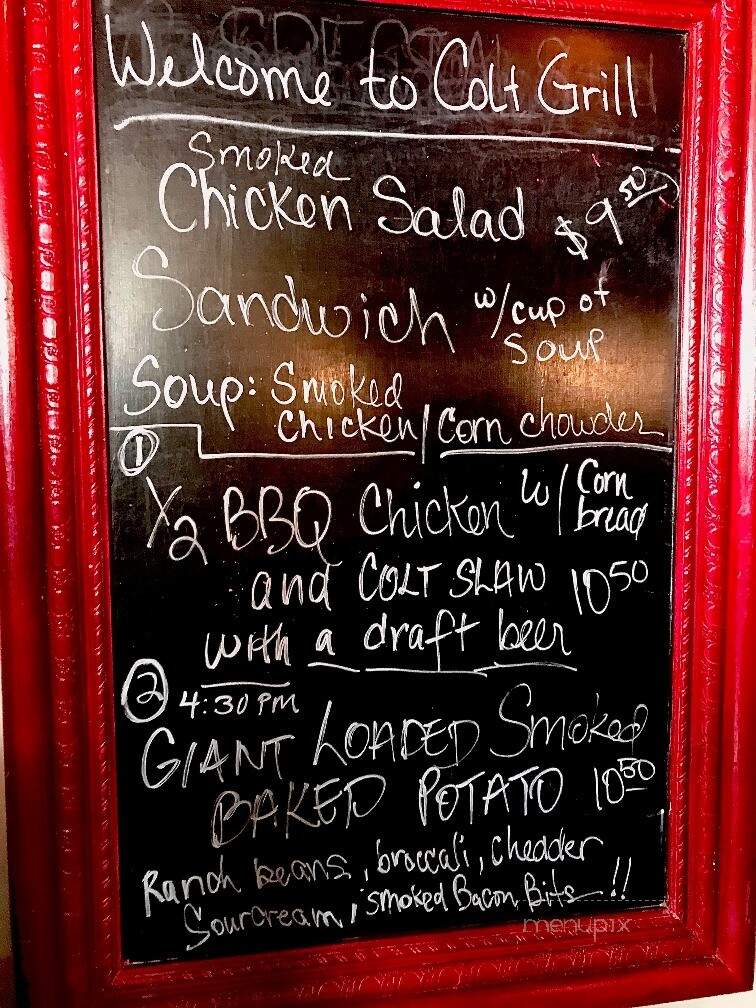 Welcome to Colt Grill
Smoked
Chicken Salad $9 50
Sandwich w/cup of
Soup
Soup: Smoked
Chicken/Corn chowder
1
1/2 BBQ Chicken w/ Corn
bread
and COLT SLAW 10 50
with a draft beer
2 4:30 PM
GIANT LOADED Smoked
BAKED POTATO 10 50
Ranch beans, broccali, chedder
Sourcream, smoked Bacon Bits !!
menupix